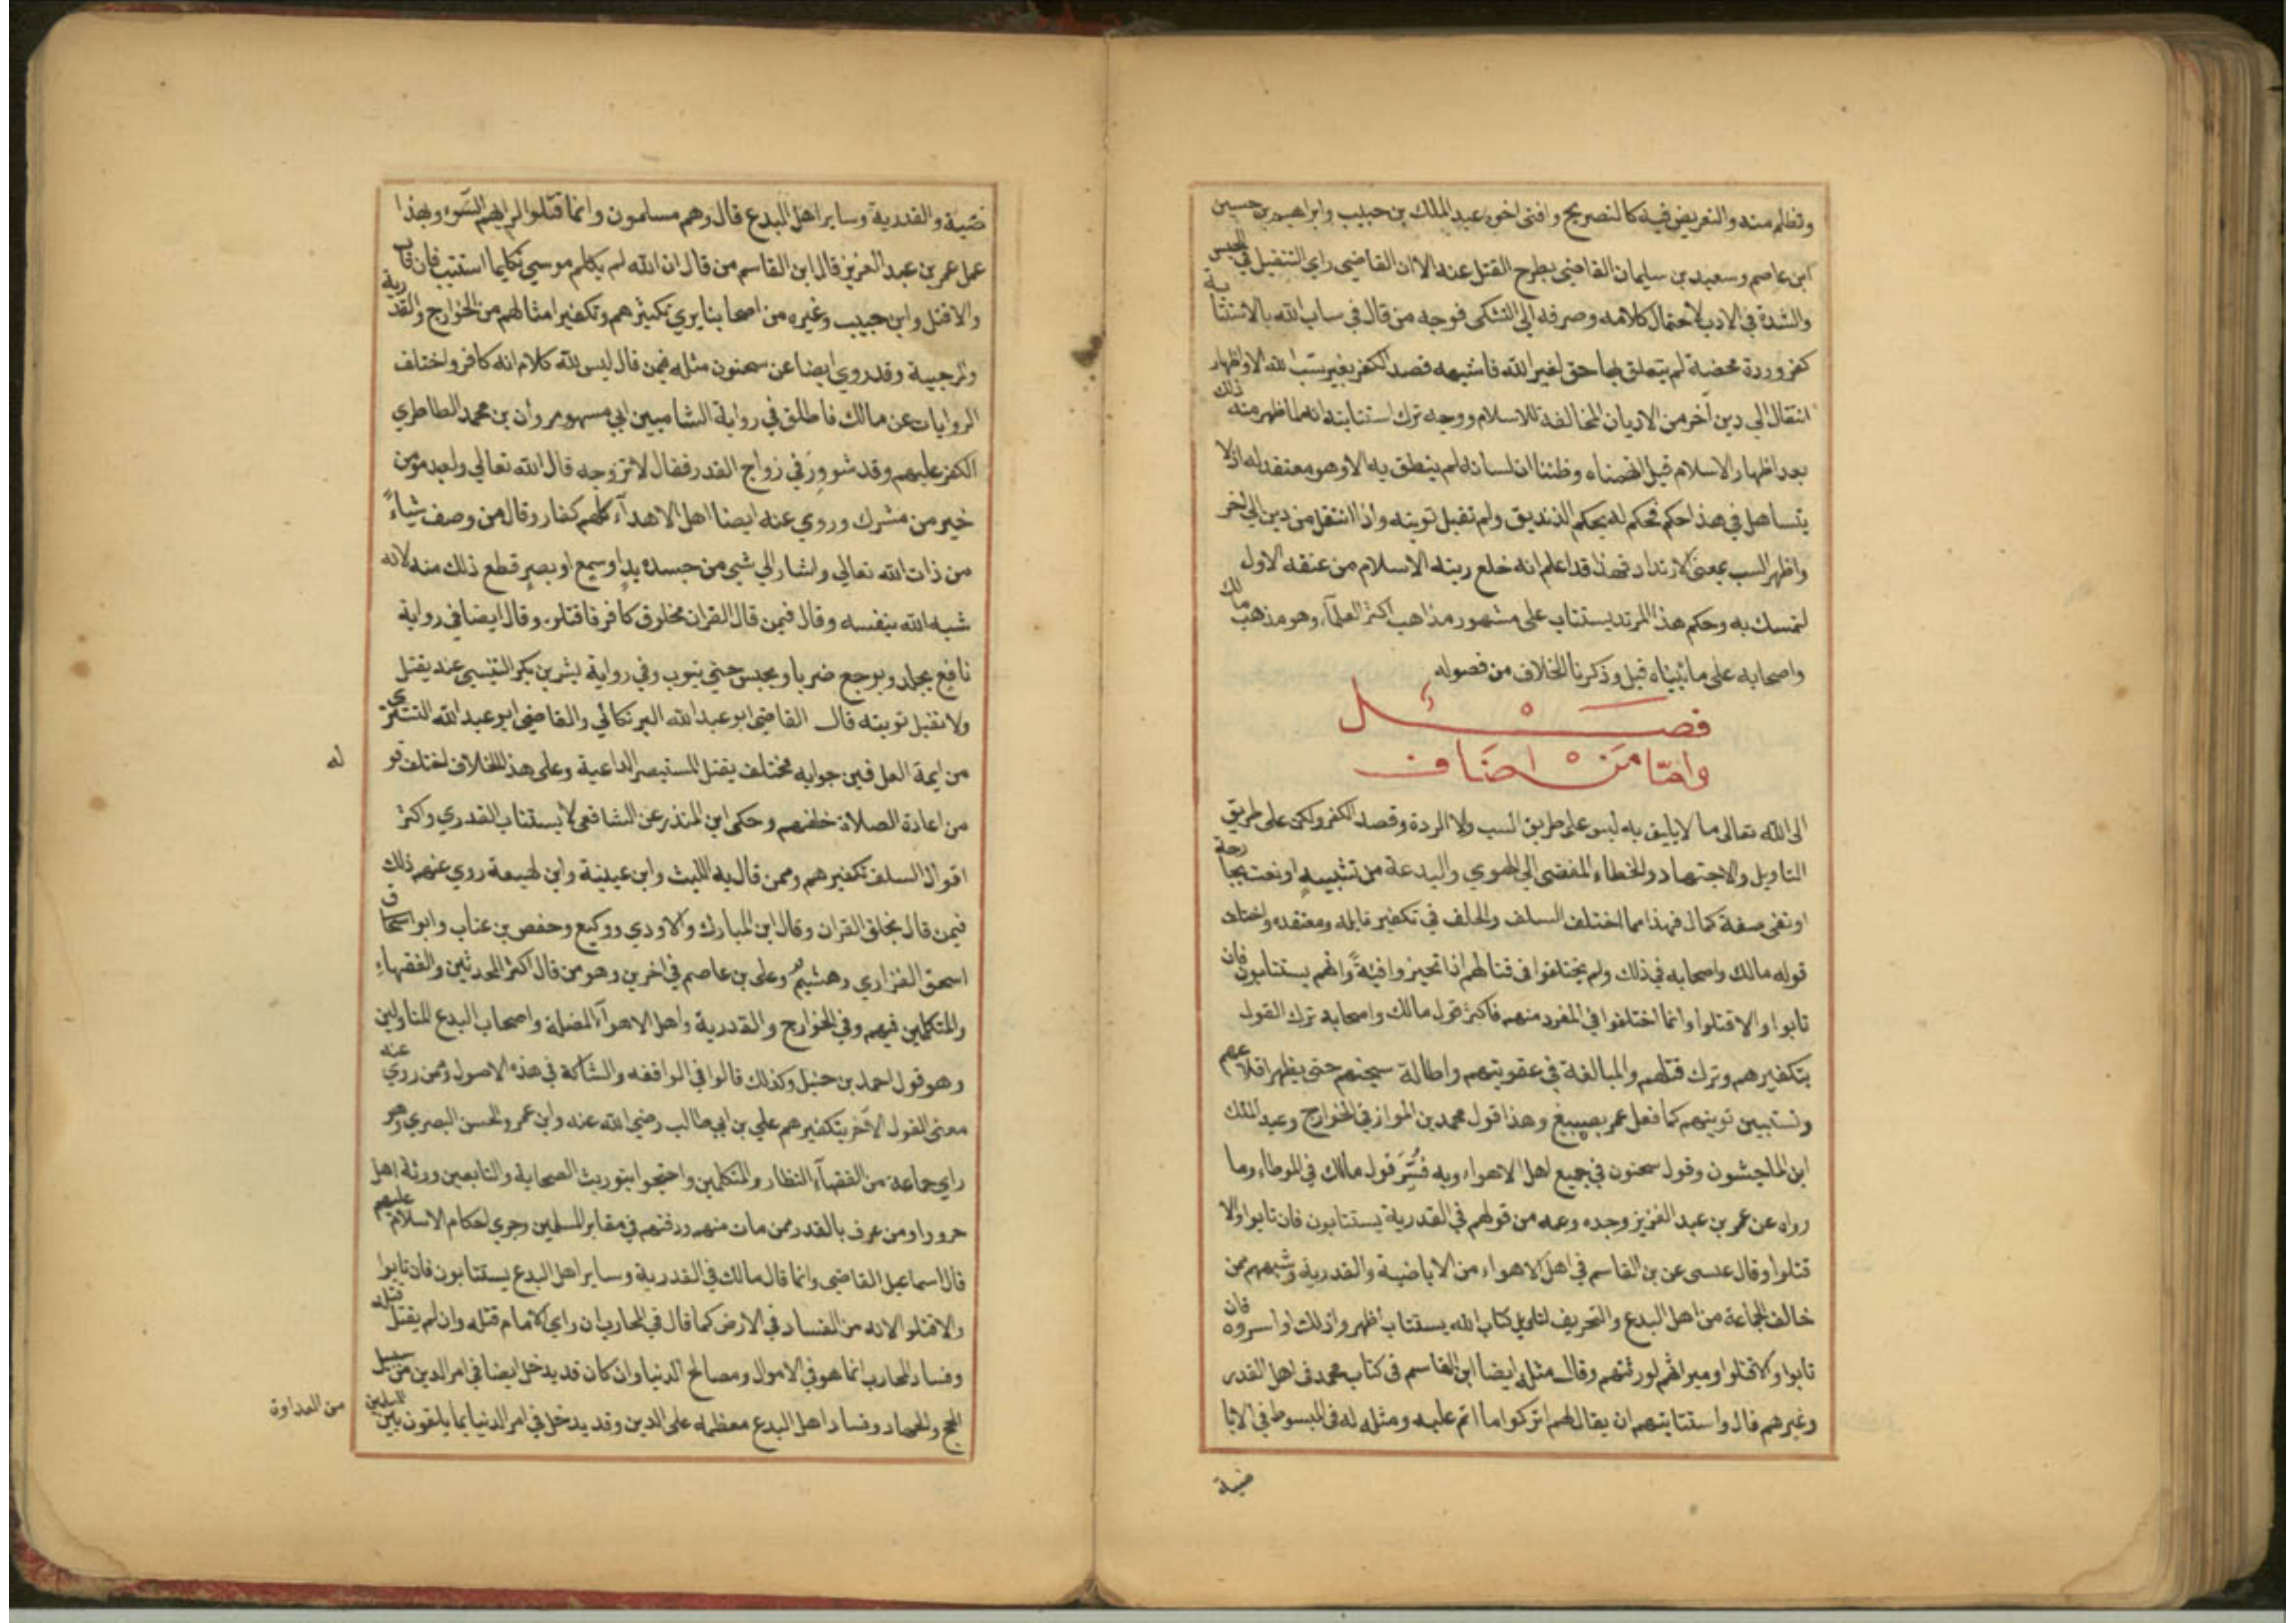 وتظلم منه والتعريض فيه كالتصريح وافتى اخوه عبد الملك بن حبيب وابراهيم بن حسين
ابن عاصم وسعيد بن سليمان القاضي بطرح القتل عنه الا ان القاضي راي التثقيل في الحبس
والشدة في الادب لاحتمال كلامه وصرفه الي التشكى فوجه من قال في ساب الله بالاستتابة
كفر وردة محضة لم يتعلق بها حق لغير الله فاشبهه قصد الكفر بغير سب الله الاو اظهار
انتقال الي دين آخر من الاديان المخالفة للاسلام ووجه ترك استتابته انه لما ظهر منه ذلك
بعد اظهار الاسلام قبل اتهمناه وظننا ان لسانه لم ينطق به الا وهو معتقد له اذ لا
يتساهل في هذا حكم فحكم له بحكم الزنديق ولم تقبل توبته واذا انتقل من دين الي اخر
واظهر السب بمعنى الارتداد فهذا قد اعلم انه خلع ربته الاسلام من عنقه الاول
لتمسك به وحكم هذا المرتد يستتاب على مشهور مذاهب اكثر العلمآء وهو مذهب مالك
واصحابه على ما بيناه قبل وذكرنا الخلاف من فصوله
فصل
وامّا مَنْ اضَاف
الى الله تعالى ما لا يليق به ليس على طريق السب ولا الردة وقصد الكفر ولكن على طريق
التاويل والاجتهاد والخطاء المفضى الي الهوي والبدعة من تشبيهٍ او نعت بجارحة
او نفى صفة كمال فهذا مما اختلف السلف والخلف في تكفير قايله ومعتقده واختلف
قوله مالك واصحابه في ذلك ولم يختلفوا فى قتالهم اذا تحيزوا فيئةً وانهم يستتابون فان
تابوا والا قتلوا وانما اختلفوا في المفرد منهم فاكثر قول مالك واصحابه ترك القول
بتكفيرهم وترك قتلهم والمبالغة في عقوبتهم واطالة سجنهم حتى يظهر اقلاعهم
وتستبين توبتهم كما فعل عمر بصبيغ وهذا قول محمد بن المواز في الخوارج وعبد الملك
ابن الماجشون وقول سحنون في جميع اهل الاهواء وبه فُسِّرَ قول مالك في الموطاء وما
رواه عن عمر بن عبد العزيز وجده وعمه من قولهم في القدرية يستتابون فان تابوا والا
قتلوا وقال عيسى عن بن القاسم في اهل الاهواء من الاباضية والقدرية وشبههم ممن
خالف الجماعة من اهل البدع والتحريف لتاويل كتاب الله يستتاب اظهروا ذلك او اسروه فان
تابوا والا قتلوا وميراثهم لورثتهم وقال مثله ايضا ابن القاسم فى كتاب محمد فى اهل القدر
وغيرهم قال واستتابتهم ان يقال لهم اتركوا ما انتم عليه ومثله له فى المبسوط في الابا
ضية
ضية والقدرية وساير اهل البدع قال وهم مسلمون وانما قتلوا لرايهم السَّوء وبهذا
عمل عمر بن عبد العزيز قال ابن القاسم من قال ان الله لم يكلم موسي تكليما استتيب فان تاب
والا قتل وابن حبيب وغيره من اصحابنا يري تكفيرهم وتكفير امثالهم من الخوارج والقدرية
والمرجيية وقد روي ايضا عن سحنون مثله فيمن قال ليس لله كلام انه كافر واختلف
الروايات عن مالك فاطلق في رواية الشاميين ابي مسهر ومروان بن محمد الطاطري
الكفر عليهم وقد شوورَ في زواج القدر فقال لا تزوجه قال الله تعالي ولعبد مؤمن
خير من مشرك وروي عنه ايضا اهل الاهدآء كلهم كفار وقال من وصف شياءً
من ذات الله تعالي واشار الي شي من جسده يدٍ او سمع او بصرٍ قطع ذلك منه لانه
شبه الله بنفسه وقال فيمن قال القران مخلوق كافر فاقتلوه وقال ايضا في رواية
نافع يجلد ويوجع ضربا ويحبس حتي يتوب وفي رواية بشر بن بكر التنيسي عنه يقتل
ولا تقبل توبته قال القاضي ابو عبد الله البرنكاني والقاضي ابو عبد الله التسترى
من ايمة العراقيين جوابه مختلف يقتل المستبصر الداعية وعلى هذا الخلاف اختلف قو
له
من اعادة الصلاة خلفهم وحكى ابن المنذر عن الشافعى لا يستتاب القدري واكثر
اقوال السلف تكفيرهم وممن قال به الليث وابن عيينة وابن لهيعة روي عنهم ذلك
فيمن قال بخلق القران وقال ابن المبارك والاودي ووكيع وحفص بن عتاب وابو اسحاق
اسحق الفزاري وهشيم وعلى بن عاصم في اخرين وهو من قال اكثر المحدثين والفقهاء
والمتكلمين فيهم وفي الخوارج والقدرية واهل الاهوآء المضلة واصحاب البدع المتاولين
وهو قول احمد بن حنبل وكذلك قالوا في الواقفه والشاكة في هذه الاصول وممن روي عنه
معنى القول الآخر بتكفيرهم علي بن ابي طالب رضي الله عنه وابن عمر والحسن البصري وهو
راي جماعة من الفقهآء النظار والمتكلمين واحتجوا بتوريث الصحابة والتابعين ورثة اهل
حرورا ومن عرف بالقدر ممن مات منهم ودفنهم في مقابر المسلمين وجري احكام الاسلام عليهم
قال اسماعيل القاضي وانما قال مالك في القدرية وساير اهل البدع يستتابون فان تابوا
والا قتلوا لانه من الفساد في الارض كما قال في المحارب ان راي الامام قتله وان لم يقتل قتله
وفساد المحارب انما هو في الاموال ومصالح الدنيا وان كان قد يدخل ايضا في امر الدين من سبيل
الحج والجهاد وفساد اهل البدع معظمه على الدين وقد يدخل في امر الدنيا بما يلقون بين المسلمين
من العداوة